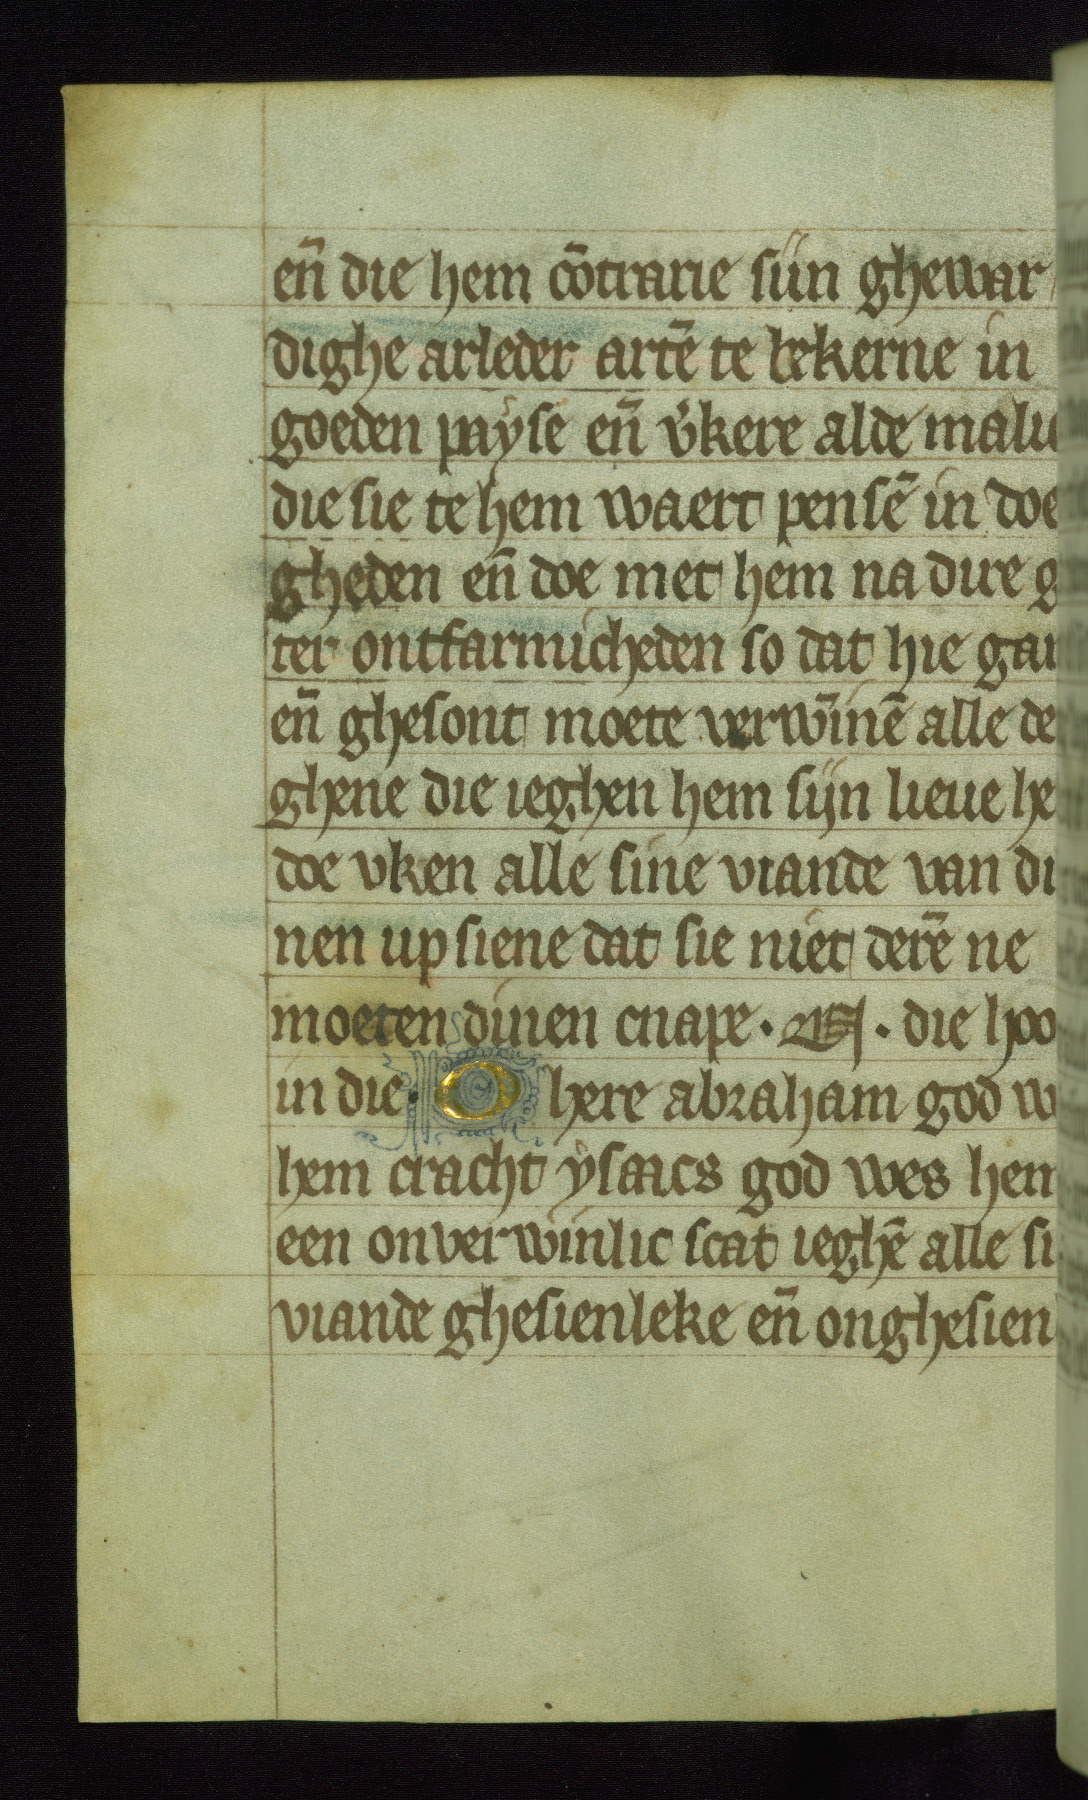 en̄ die hem cōtrarie sijn ghewar
dighe arleder artē te bekerne in
goeden payse en̄ v̓kere alde
die sie te hem waert pensē in doe
gheden en̄ doe met hem na dire
ter ontfarmicheden so dat hie
en̄ ghesont moete verwīnē alle de
ghene die ieghen hem sijn lieue he
doe vlien alle sine viande van di
nen up siene dat sie niet derē ne
moeten dinen cnape · N · die hoo
in die · O here abraham god
hem cracht ysaacs god wes hem
een onverwinlic scat ieghē alle si
viande ghesienleke en̄ onghesien